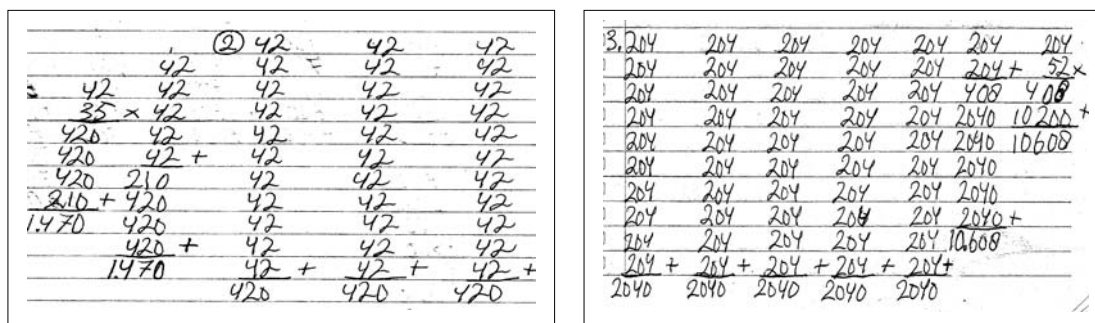 ② 42 42 42
42 42 = 42 42
42 42 42 42 42
35 × 42 42 42 42
420 42 42 42 42
420 42 + 42 42 42
420 210 42 42 42
210 + 420 42 42 42
1.470 420 42 42 42
420 + 42 42 42
1.470 42 + 42 + 42 +
420 420 420
3. 204 204 204 204 204 204 204
204 204 204 204 204 204 + 52 ×
204 204 204 204 204 408 408
204 204 204 204 204 2040 10200 +
204 204 204 204 204 2040 10608
204 204 204 204 204 2040
204 204 204 204 204 2040
204 204 204 204 204 2040 +
204 204 204 204 204 10.608
204 + 204 + 204 + 204 + 204 +
2040 2040 2040 2040 2040